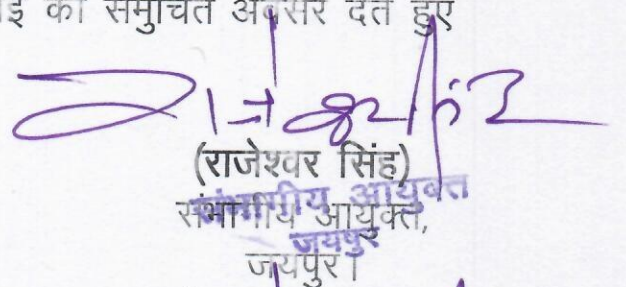 का समुचित अवसर देते हुए
(राजेश्वर सिंह)
संभागीय आयुक्त
संभागीय आयुक्त,
जयपुर
जयपुर।